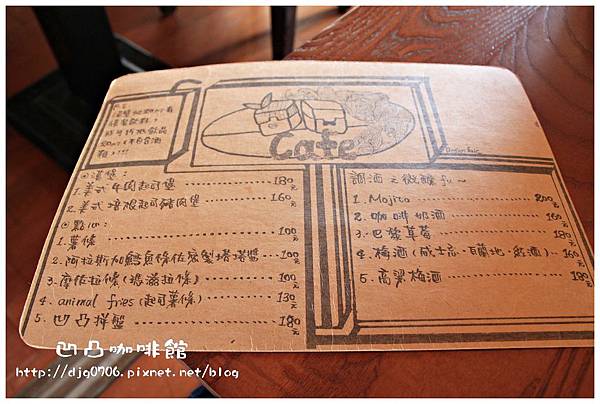 P.S
Cafe
◎漢堡
1. 美式牛肉起司堡 180元
2. 美式培根起司豬肉堡 160元
◎點心:
1. 薯條 100元
2. 阿拉斯加鱈魚條佐家製塔塔醬 100元
3. 摩佐拉條(瑪滋拉條) 100元
4. animal fries (起司薯條) 130元
5. 凹凸拼盤 180元
調酒之微醺fu~
1. Mojito 200元
2. 咖啡奶酒 160元
3. 巴黎草莓 180元
4. 梅酒(威士忌、白蘭地、熱酒) 160元
5. 高粱梅酒 180元
凹凸咖啡館
http://djg0706.pixnet.net/blog